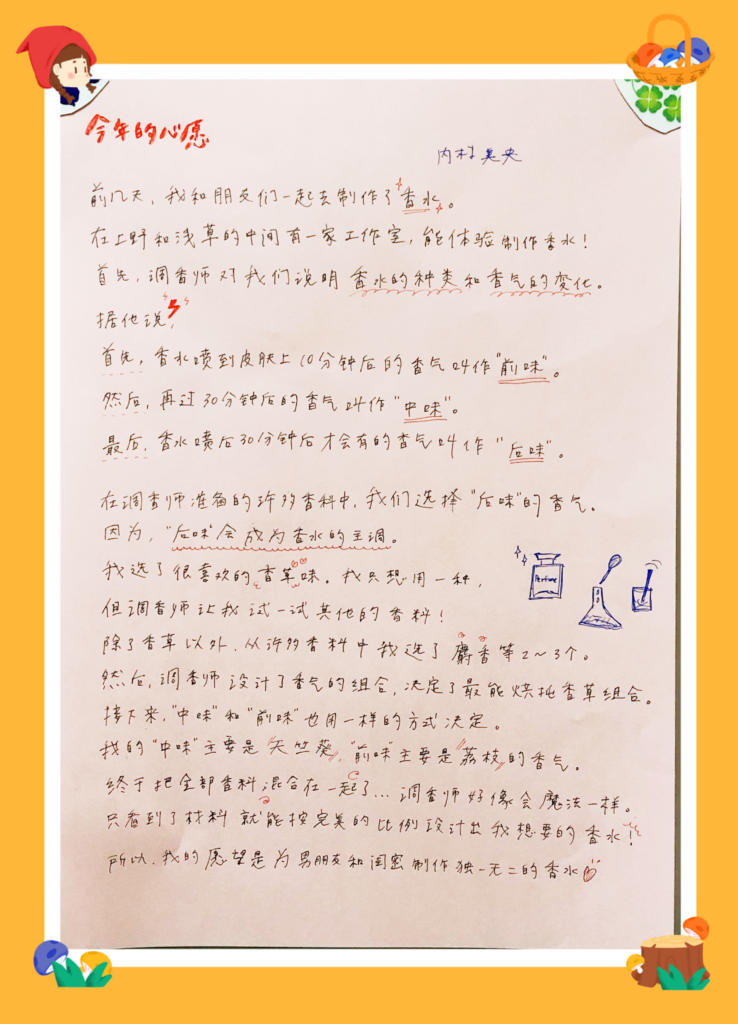 今年的心愿
内村美央
前几天，我和朋友们一起去制作了香水。
在上野和浅草的中间有一家工作室，能体验制作香水！
首先，调香师对我们说明香水的种类和香气的变化。
据他说，
首先，香水喷到皮肤上10分钟后的香气叫作"前味"。
然后，再过30分钟后的香气叫作"中味"。
最后，香水喷后30分钟后才会有的香气叫作"后味"。
在调香师准备的许多香料中，我们选择"后味"的香气。
因为，"后味"会成为香水的主调。
我选了很喜欢的香草味。我只想用一种，
但调香师让我试一试其他的香料！
除了香草以外，从许多香料中我选了麝香等2～3个。
然后，调香师设计了香气的组合，决定了最能烘托香草组合。
接下来，"中味"和"前味"也用一样的方式决定。
我的"中味"主要是"天竺葵"，"前味"主要是"荔枝"的香气。
终于把全部香料混合在一起了...调香师好像会魔法一样。
只看到了材料就能按完美的比例设计出我想要的香水！
所以，我的愿望是为男朋友和闺密制作独一无二的香水
Perfume